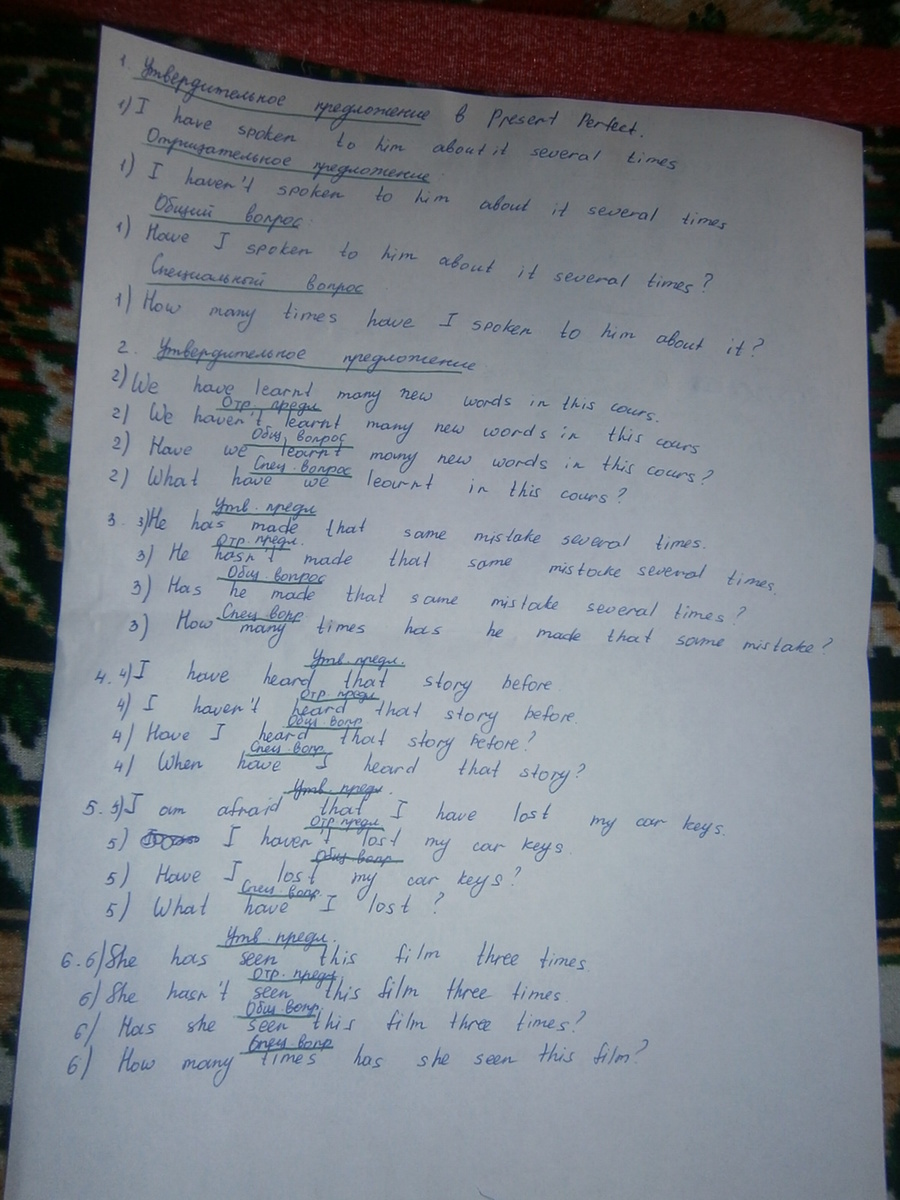 1. Утвердительное предложение в Present Perfect.
1) I have spoken to him about it several times
Отрицательное предложение:
1) I haven't spoken to him about it several times
Общий вопрос:
1) Have I spoken to him about it several times?
Специальный вопрос
1) How many times have I spoken to him about it?
2. Утвердительное предложение
2) We have learnt many new words in this cours.
Отр. предл.
2) We haven't learnt many new words in this cours
Общ. вопрос
2) Have we learnt many new words in this cours?
Спец. вопрос
2) What have we learnt in this cours?
Утв. предл
3. 3) He has made that same mistake several times.
Отр. предл.
3) He hasn't made that same mistake several times.
Общ. вопрос
3) Has he made that same mistake several times?
Спец вопр.
3) How many times has he made that same mistake?
Утв. предл.
4. 4) I have heard that story before
Отр. предл
4) I haven't heard that story before.
Общ. вопр.
4) Have I heard that story before?
Спец. вопр.
4) When have I heard that story?
Утв. предл.
5. 5) I am afraid that I have lost my car keys.
Отр. предл.
5) I haven't lost my car keys.
Общ. вопр.
5) Have I lost my car keys?
Спец. вопр.
5) What have I lost?
Утв. предл.
6. 6) She has seen this film three times.
Отр. предл
6) She hasn't seen this film three times.
Общ. вопр.
6) Has she seen this film three times?
Спец вопр
6) How many times has she seen this film?